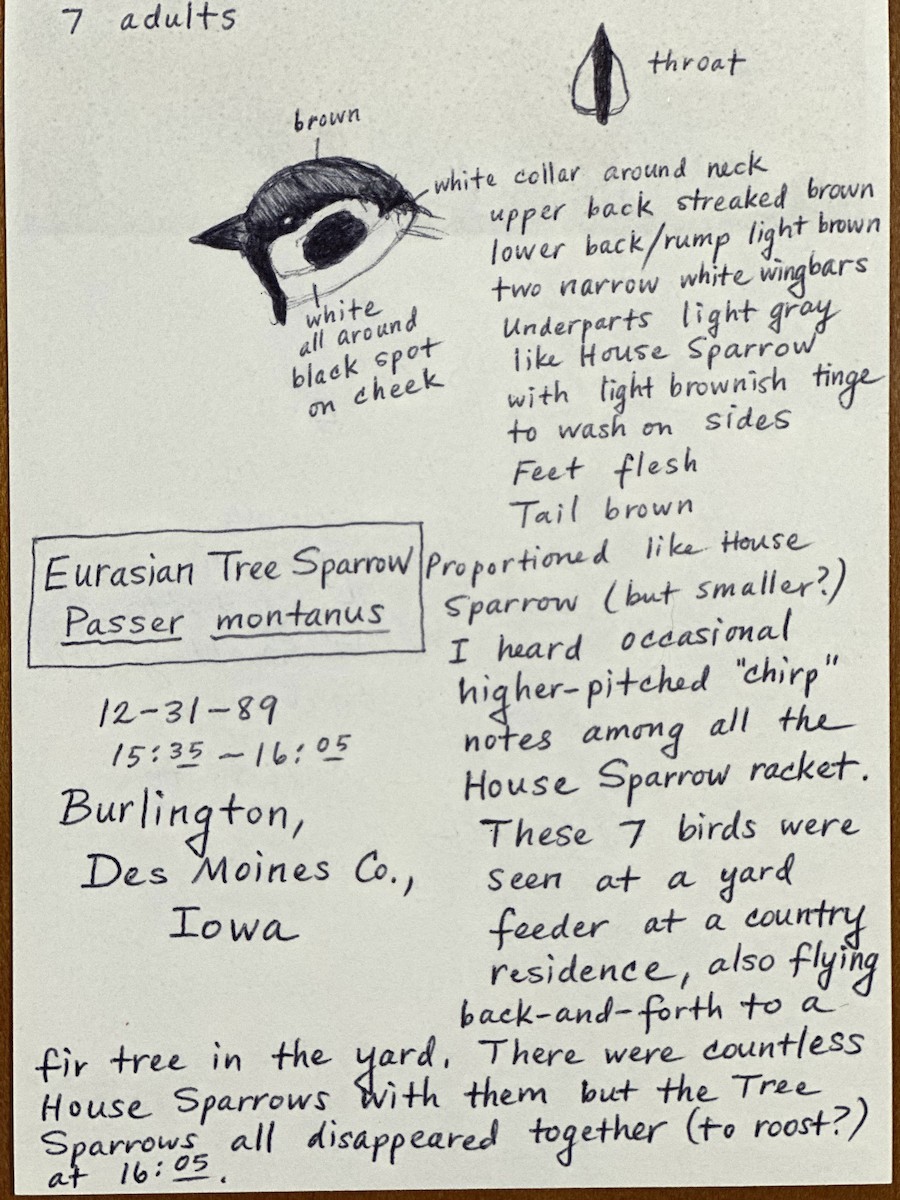 7 adults
throat
brown
white collar around neck
upper back streaked brown
lower back/rump light brown
two narrow white wingbars
Underparts light gray
like House Sparrow
with light brownish tinge
to wash on sides
Feet flesh
Tail brown
white
all around
black spot
on cheek
Eurasian Tree Sparrow
Passer montanus
12-31-89
15:35 - 16:05
Burlington,
Des Moines Co.,
Iowa
Proportioned like House
Sparrow (but smaller?)
I heard occasional
higher-pitched "chirp"
notes among all the
House Sparrow racket.
These 7 birds were
seen at a yard
feeder at a country
residence, also flying
back-and-forth to a
fir tree in the yard. There were countless
House Sparrows with them but the Tree
Sparrows all disappeared together (to roost?)
at 16:05.